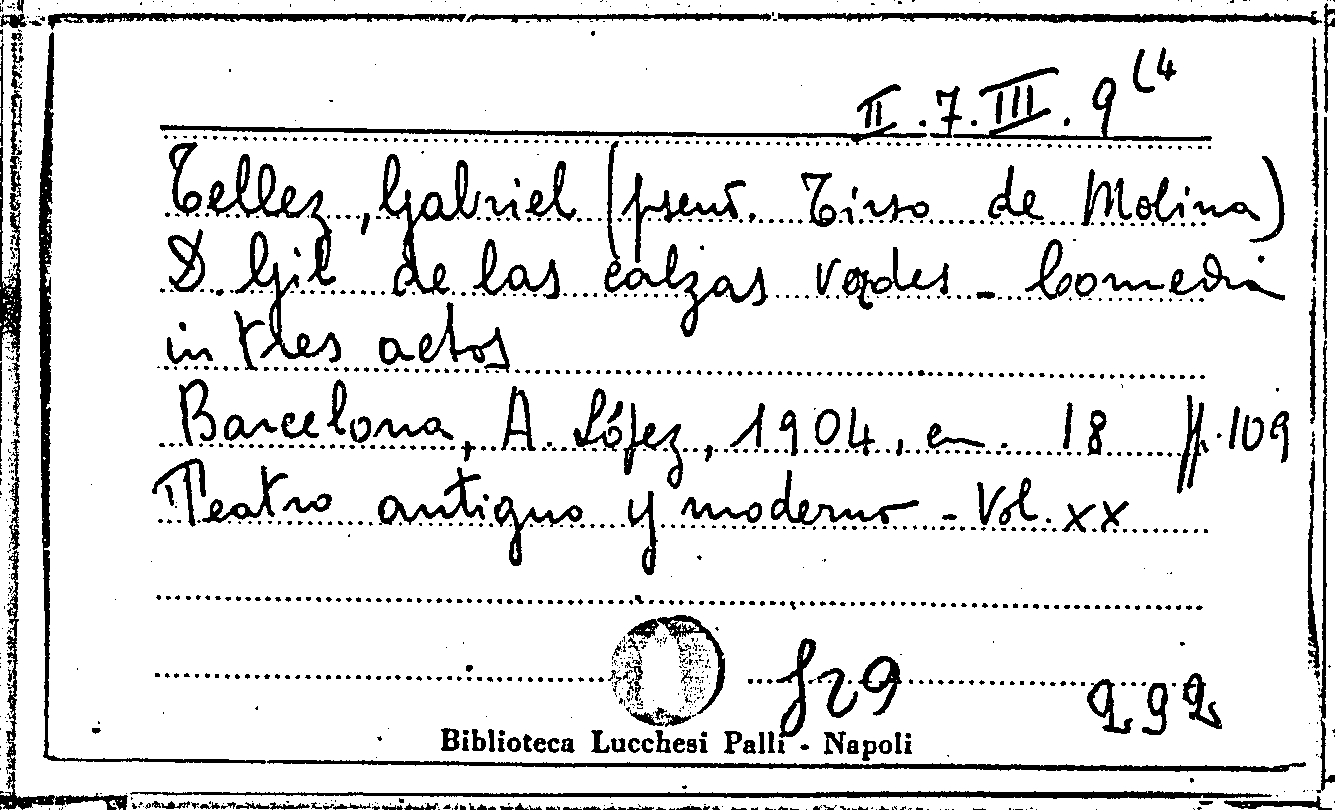 II.7.III.9(4
Tellez, Gabriel (pseud. Tirso de Molina)
D. Gil de las calzas verdes - Comedia
in tres actos
Barcelona, A. López, 1904, en. 18 pp. 109
Teatro antiguo y moderno - Vol. XX
f29
292
Biblioteca Lucchesi Palli - Napoli